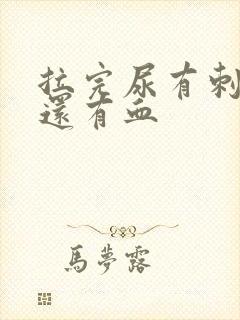 拉完尿有刺
還有血
馬夢露